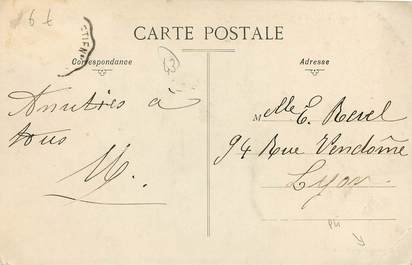 79
TIEN
CARTE POSTALE
43
Correspondance
Adresse
Amitiés à
tous
M.
Mlle E. Revel
94 Rue Vendôme
Lyon
Pli